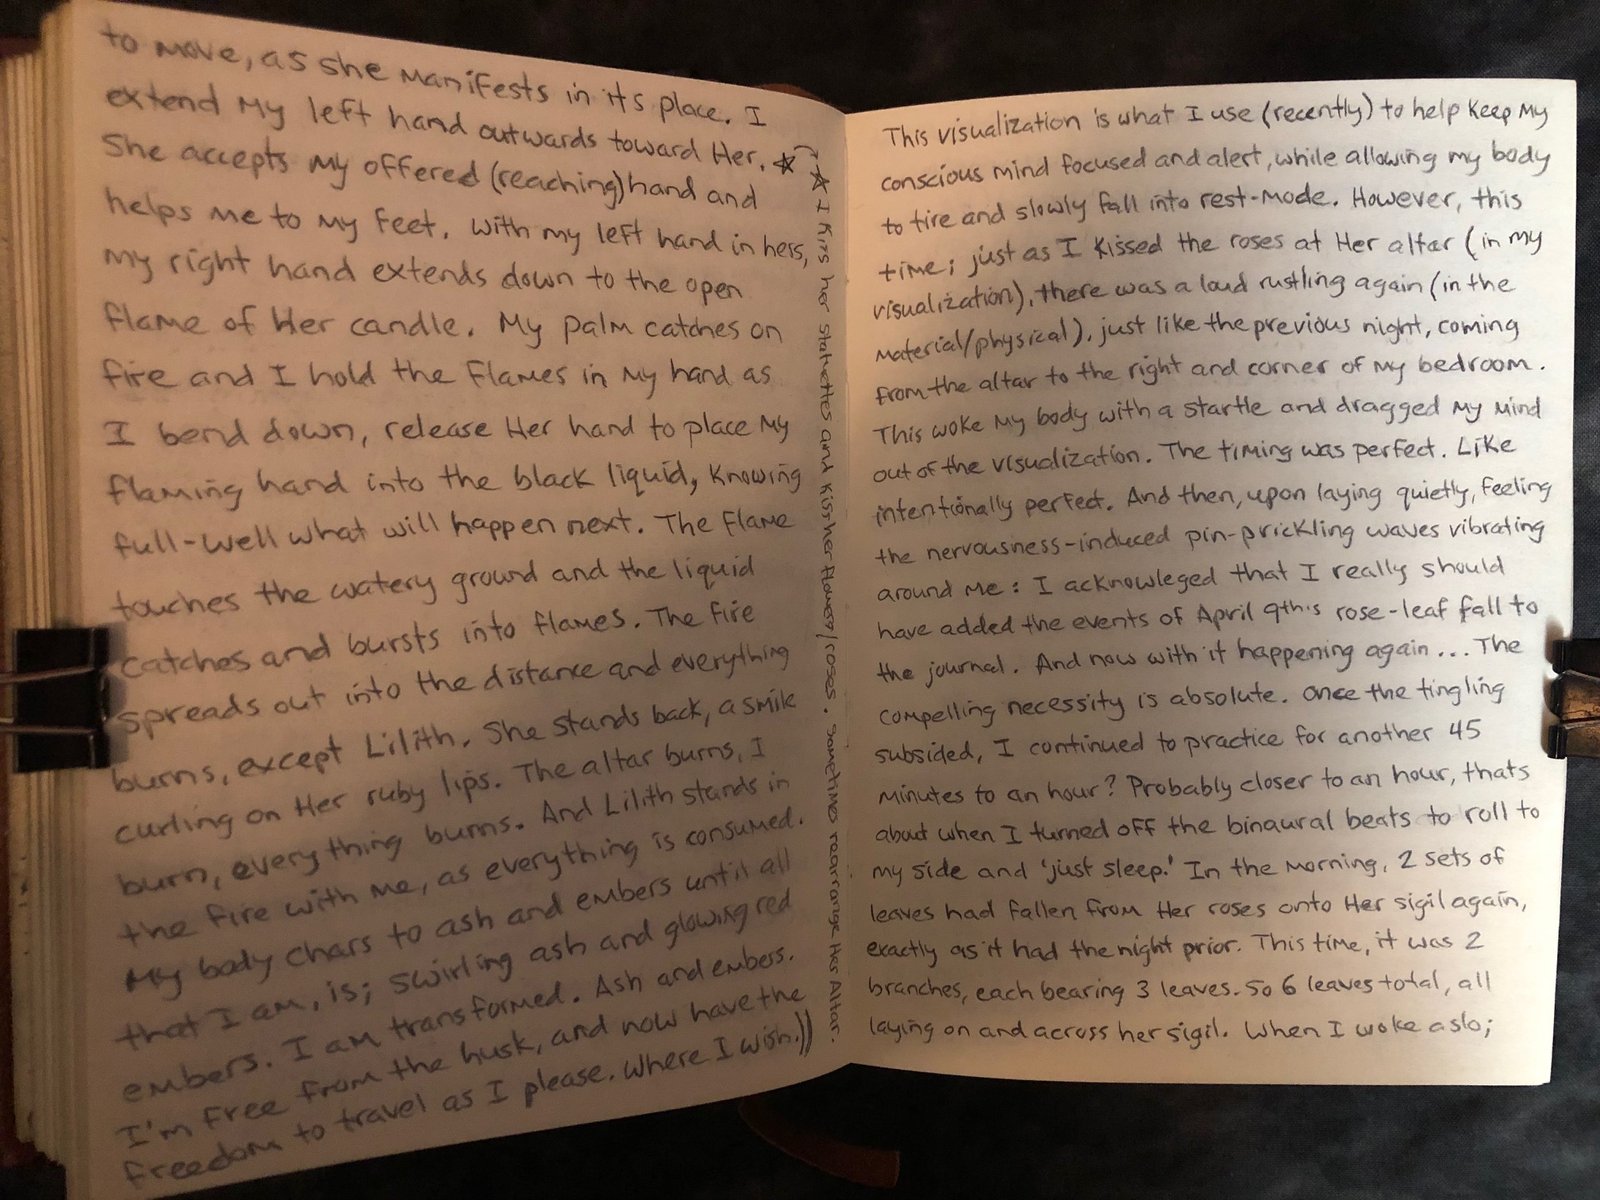 to move, as she manifests in its place. I
extend my left hand outwards toward Her. ☆
She accepts my offered (reaching) hand and
helps me to my feet. With my left hand in hers,
my right hand extends down to the open
flame of Her candle. My palm catches on
fire and I hold the flames in my hand as
I bend down, release Her hand to place my
flaming hand into the black liquid, knowing
full-well what will happen next. The flame
touches the watery ground and the liquid
catches and bursts into flames. The fire
spreads out into the distance and everything
burns, except Lilith. She stands back, a smile
curling on Her ruby lips. The altar burns, I
burn, everything burns. And Lilith stands in
the fire with me, as everything is consumed.
My body chars to ash and embers until all
that I am, is; swirling ash and glowing red
embers. I am transformed. Ash and embers.
I'm free from the husk, and now have the
freedom to travel as I please. Where I wish.))
☆ I kiss her statuettes and kiss her flower/roses. Sometimes rearrange Her Altar.
This visualization is what I use (recently) to help keep my
conscious mind focused and alert, while allowing my body
to tire and slowly fall into rest-mode. However, this
time; just as I kissed the roses at Her altar (in my
visualization), there was a loud rustling again (in the
material/physical), just like the previous night, coming
from the altar to the right and corner of my bedroom.
This woke my body with a startle and dragged my mind
out of the visualization. The timing was perfect. Like
intentionally perfect. And then, upon laying quietly, feeling
the nervousness-induced pin-prickling waves vibrating
around me: I acknowleged that I really should
have added the events of April 9th's rose-leaf fall to
the journal. And now with it happening again... The
compelling necessity is absolute. Once the tingling
subsided, I continued to practice for another 45
minutes to an hour? Probably closer to an hour, thats
about when I turned off the binaural beats to roll to
my side and 'just sleep.' In the morning, 2 sets of
leaves had fallen from Her roses onto Her sigil again,
exactly as it had the night prior. This time, it was 2
branches, each bearing 3 leaves. So 6 leaves total, all
laying on and across her sigil. When I woke aslo;